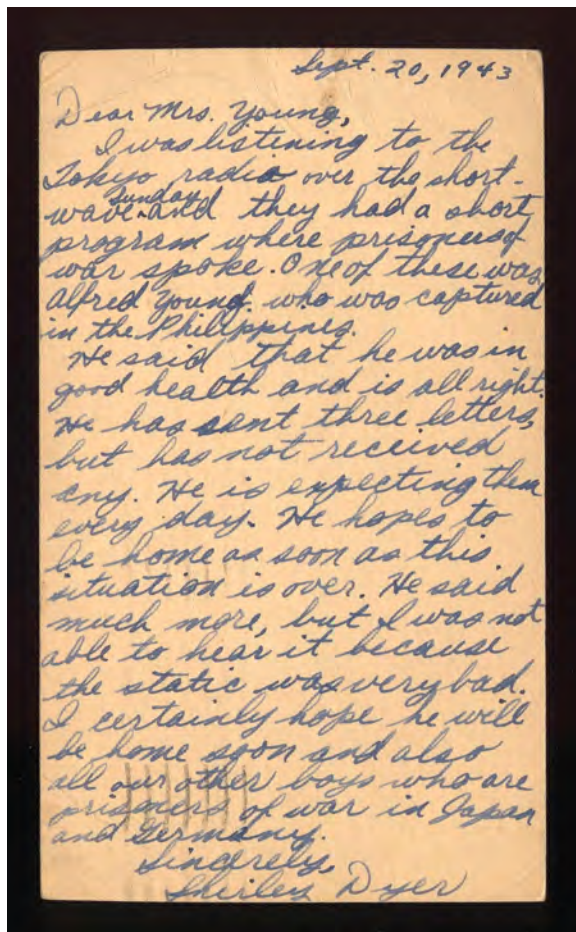 Sept. 20, 1943
Dear Mrs. Young,
I was listening to the
Tokyo radio over the short-
wave Sunday and they had a short
program where prisoners of
war spoke. One of these was
Alfred Young. who was captured
in the Philippines.
He said that he was in
good health and is all right.
He has sent three letters,
but has not received
any. He is expecting them
every day. He hopes to
be home as soon as this
situation is over. He said
much more, but I was not
able to hear it because
the static was very bad.
I certainly hope he will
be home soon and also
all our other boys who are
prisoners of war in Japan
and Germany.
Sincerely,
Shirley Dyer